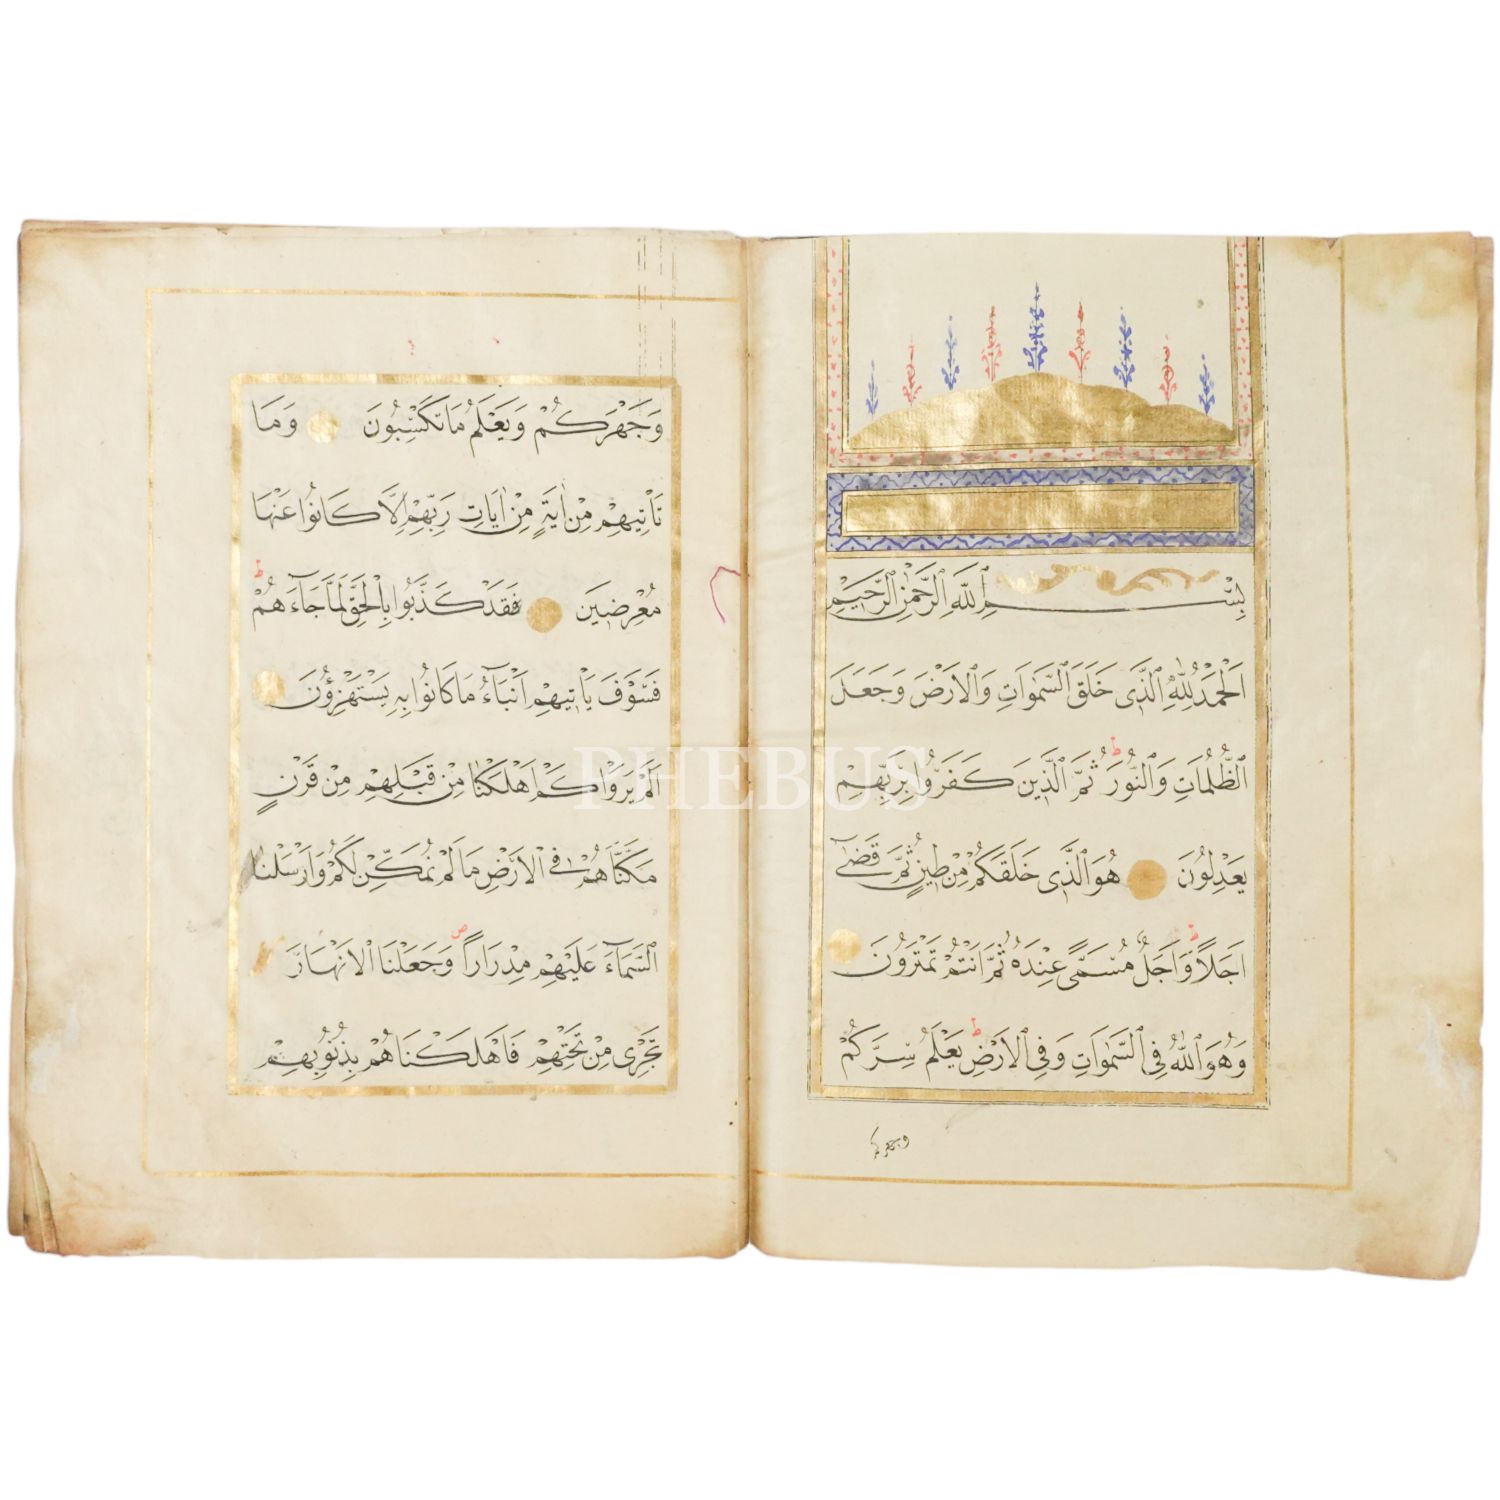 بِسْمِ اللَّهِ الرَّحْمٰنِ الرَّحِيمِ
اَلْحَمْدُ لِلّٰهِ الَّذِى خَلَقَ السَّمٰوَاتِ وَالْاَرْضَ وَجَعَلَ
الظُّلُمَاتِ وَالنُّورَ ط ثُمَّ الَّذِينَ كَفَرُوا بِرَبِّهِمْ
يَعْدِلُونَ هُوَ الَّذِى خَلَقَكُمْ مِنْ طِينٍ ثُمَّ قَضٰٓى
اَجَلًا ط وَاَجَلٌ مُسَمًّى عِنْدَهُ ثُمَّ اَنْتُمْ تَمْتَرُونَ
وَهُوَ اللّٰهُ فِى السَّمٰوَاتِ وَفِى الْاَرْضِ ط يَعْلَمُ سِرَّكُمْ
وجهركم
وَجَهْرَكُمْ وَيَعْلَمُ مَا تَكْسِبُونَ وَمَا
تَاْتِيهِمْ مِنْ اٰيَةٍ مِنْ اٰيَاتِ رَبِّهِمْ اِلَّا كَانُوا عَنْهَا
مُعْرِضِينَ فَقَدْ كَذَّبُوا بِالْحَقِّ لَمَّا جَٓاءَهُمْ ط
فَسَوْفَ يَاْتِيهِمْ اَنْبٰٓاءُ مَا كَانُوا بِهِ يَسْتَهْزِؤُنَ
اَلَمْ يَرَوْا كَمْ اَهْلَكْنَا مِنْ قَبْلِهِمْ مِنْ قَرْنٍ
مَكَّنَّاهُمْ فِى الْاَرْضِ مَا لَمْ نُمَكِّنْ لَكُمْ وَاَرْسَلْنَا
السَّمَٓاءَ عَلَيْهِمْ مِدْرَارًا ص وَجَعَلْنَا الْاَنْهَارَ
تَجْرِى مِنْ تَحْتِهِمْ فَاَهْلَكْنَاهُمْ بِذُنُوبِهِمْ
PHEBUS